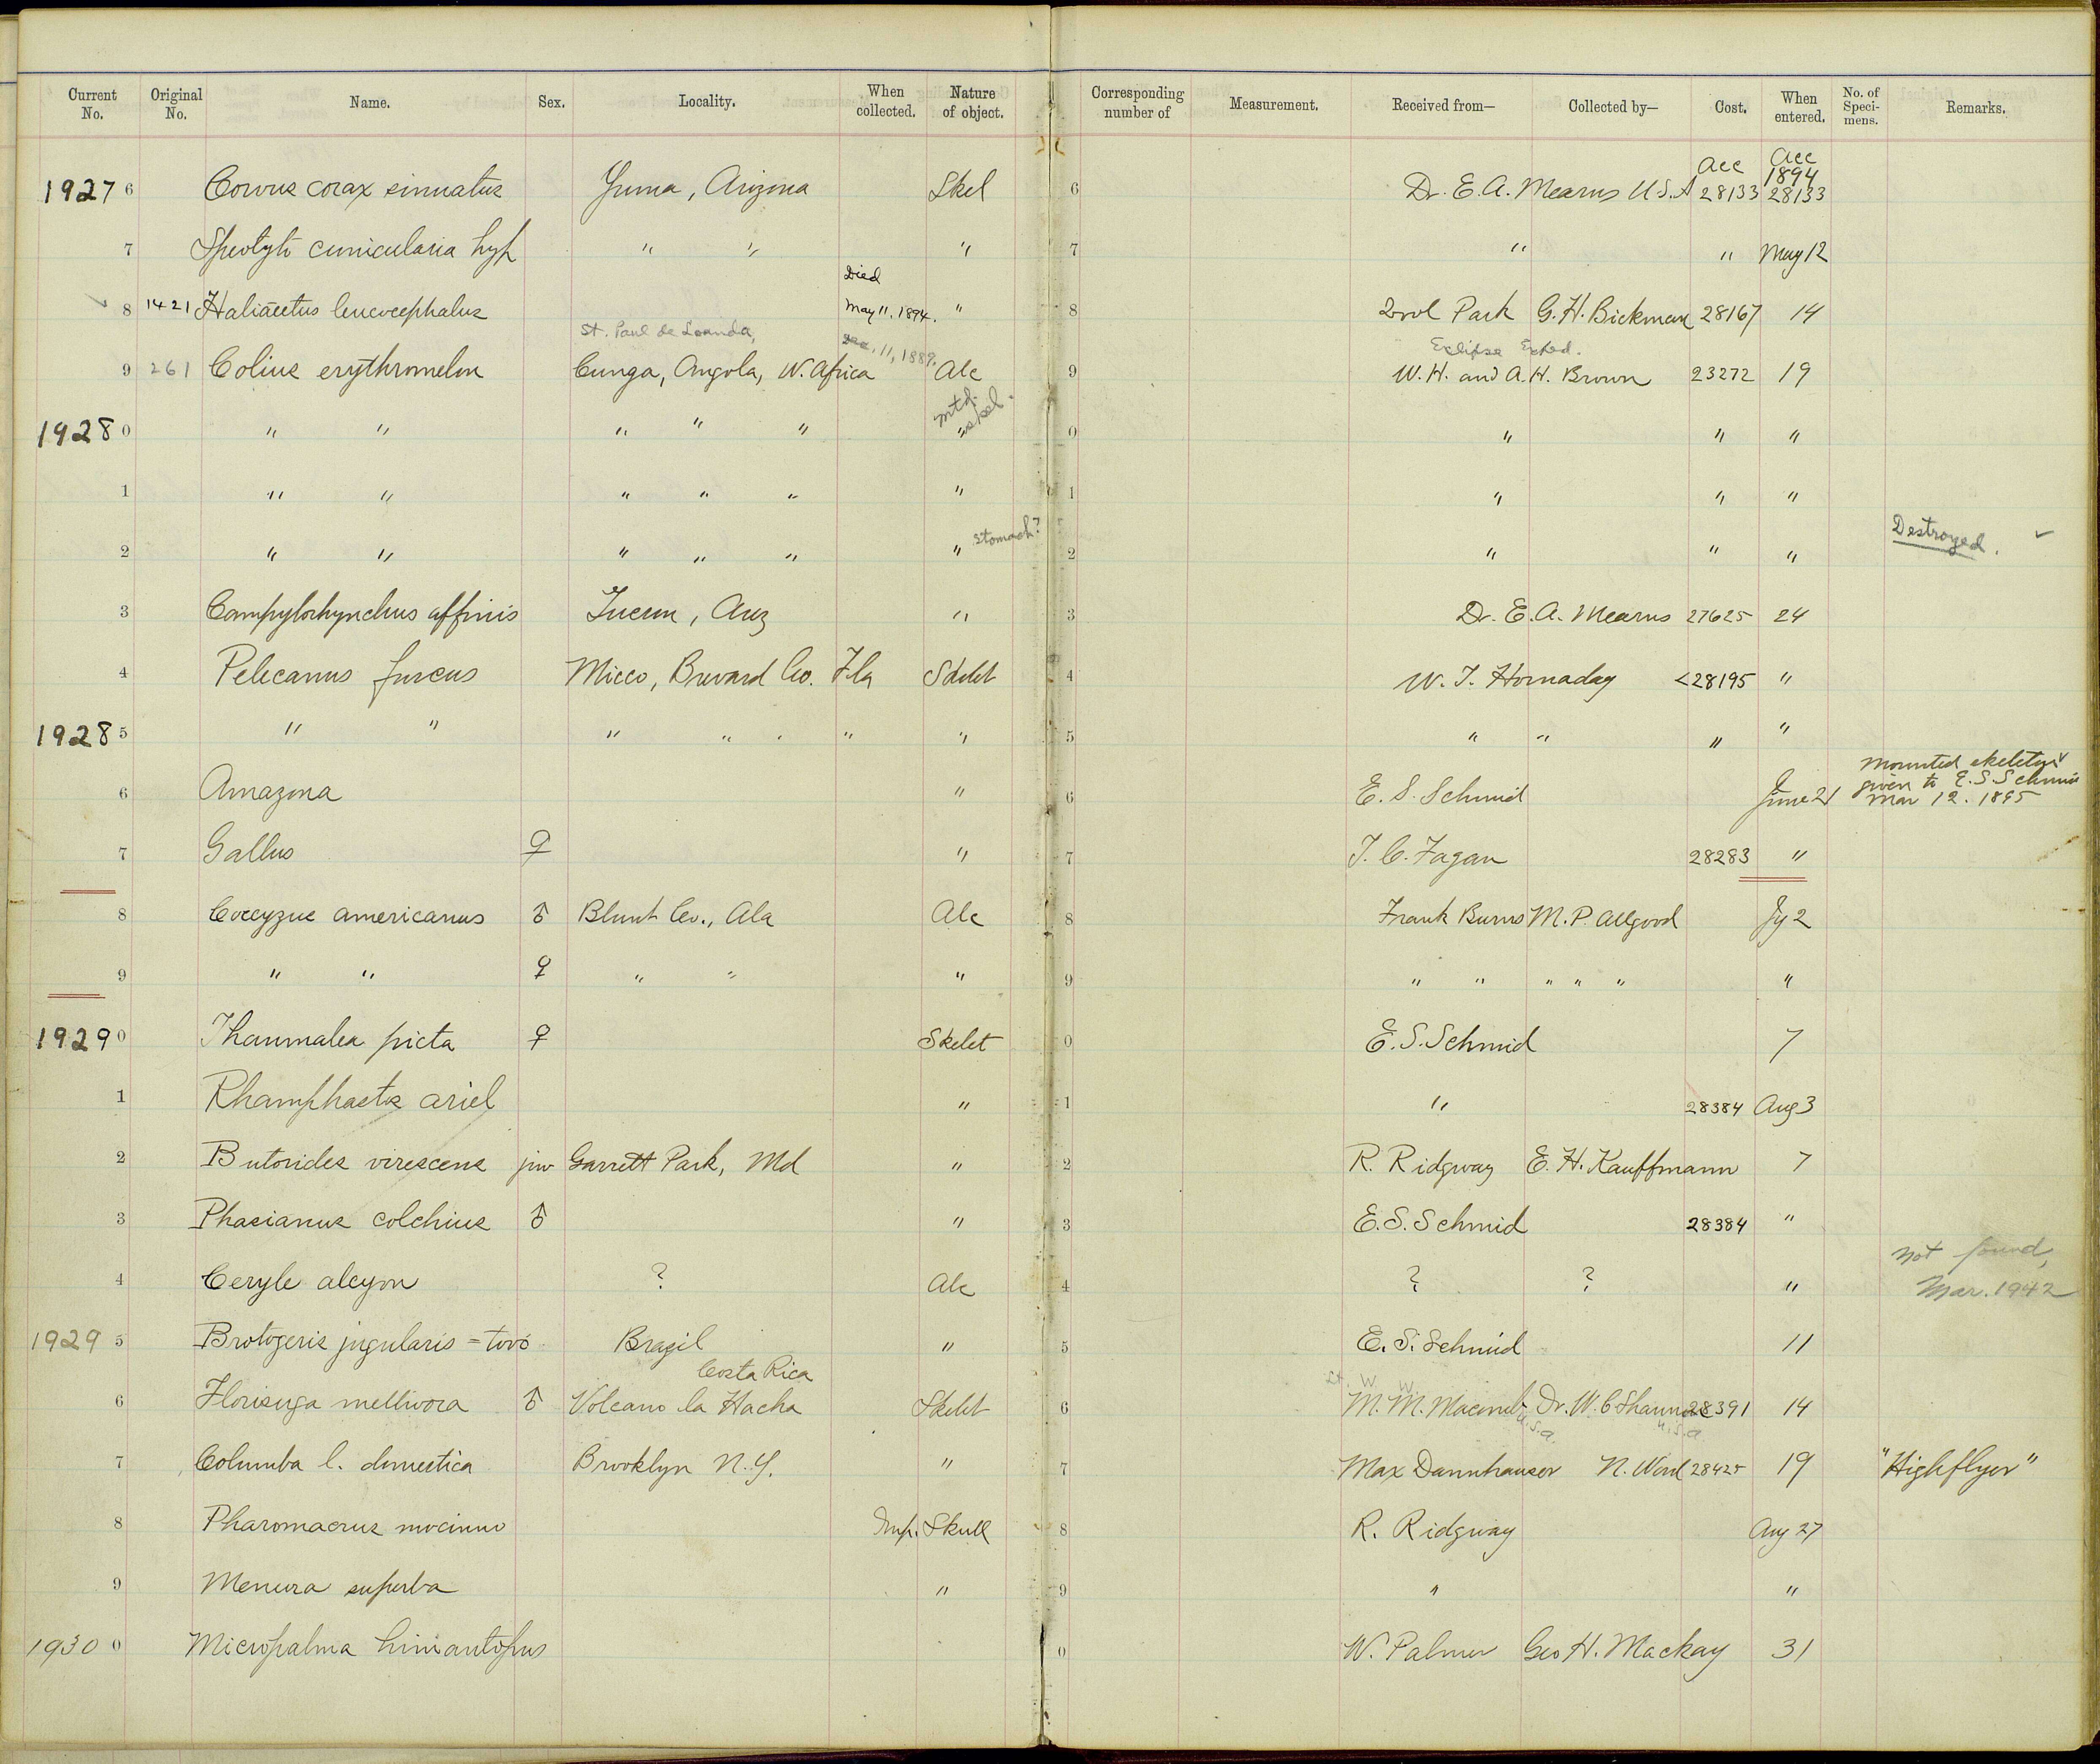 Current No. Original No. Name. Sex. Locality. When collected. Nature of object. Corresponding number of Measurement. Received from— Collected by— Cost. When entered. No. of Speci- mens. Remarks.
Acc Acc 1894
1927 6 Corvus corax sinuatus Yuma, Arizona Skel 6 Dr. E. A. Mearns U.S.A 28133 28133
7 Speotyto cunicularia hyp " " " 7 " " May 12
Died
8 1421 Haliaeetus leucocephalus May 11. 1894. " 8 Zool Park G. H. Bickman 28167 14
St. Paul de Loanda, Dec. 11, 1889. Eclipse Exped.
9 261 Colius erythromelon Cunga, Angola, W. Africa Alc 9 W. H. and A. H. Brown 23272 19
mtd. skel.
1928 0 " " " " " " 0 " " "
1 " " " " " " 1 " " "
stomach? Destroyed.
2 " " " " " " 2 " " "
3 Campylorhynchus affinis Tucson, Ariz " 3 Dr. E. A. Mearns 27625 24
4 Pelecanus fuscus Micco, Brevard Co. Fla Skelet 4 W. T. Hornaday <28195 "
1928 5 " " " " " " 5 " " " "
6 Amazona " 6 E. S. Schmid June 21 Mounted skeleton given to E. S. Schmid Mar 12. 1895
7 Gallus ♀ " 7 T. C. Fagan 28283 "
8 Coccyzus americanus ♂ Blunt Co., Ala Alc 8 Frank Burns M. P. Allgood Jy 2
9 " " ♀ " " " 9 " " " " " "
1929 0 Thaumalea picta ♀ Skelet 0 E. S. Schmid 7
1 Rhamphastos ariel " 1 " 28384 Aug 3
2 Butorides virescens juv Garrett Park, Md " 2 R. Ridgway E. H. Kauffmann 7
3 Phasianus colchius ♂ " 3 E. S. Schmid 28384 "
4 Ceryle alcyon ? Alc 4 ? ? " Not found, Mar. 1942
1929 5 Brotogeris jugularis = tovi Brazil " 5 E. S. Schmid 11
Costa Rica
6 Florisuga mellivora ♂ Volcano la Hacha Skelet 6 Lt. M. M. Macomb U.S.A. Dr. W. C. Shannon U.S.A. 28391 14
7 Columba l. domestica Brooklyn N. Y. " 7 Max Dannhauser N. Word 28425 19 "Highflyer"
8 Pharomacrus mocinno Imp. Skull 8 R. Ridgway Aug 27
9 Menura superba " 9 " "
1930 0 Micropalma himantopus 0 W. Palmer Geo H. Mackay 31